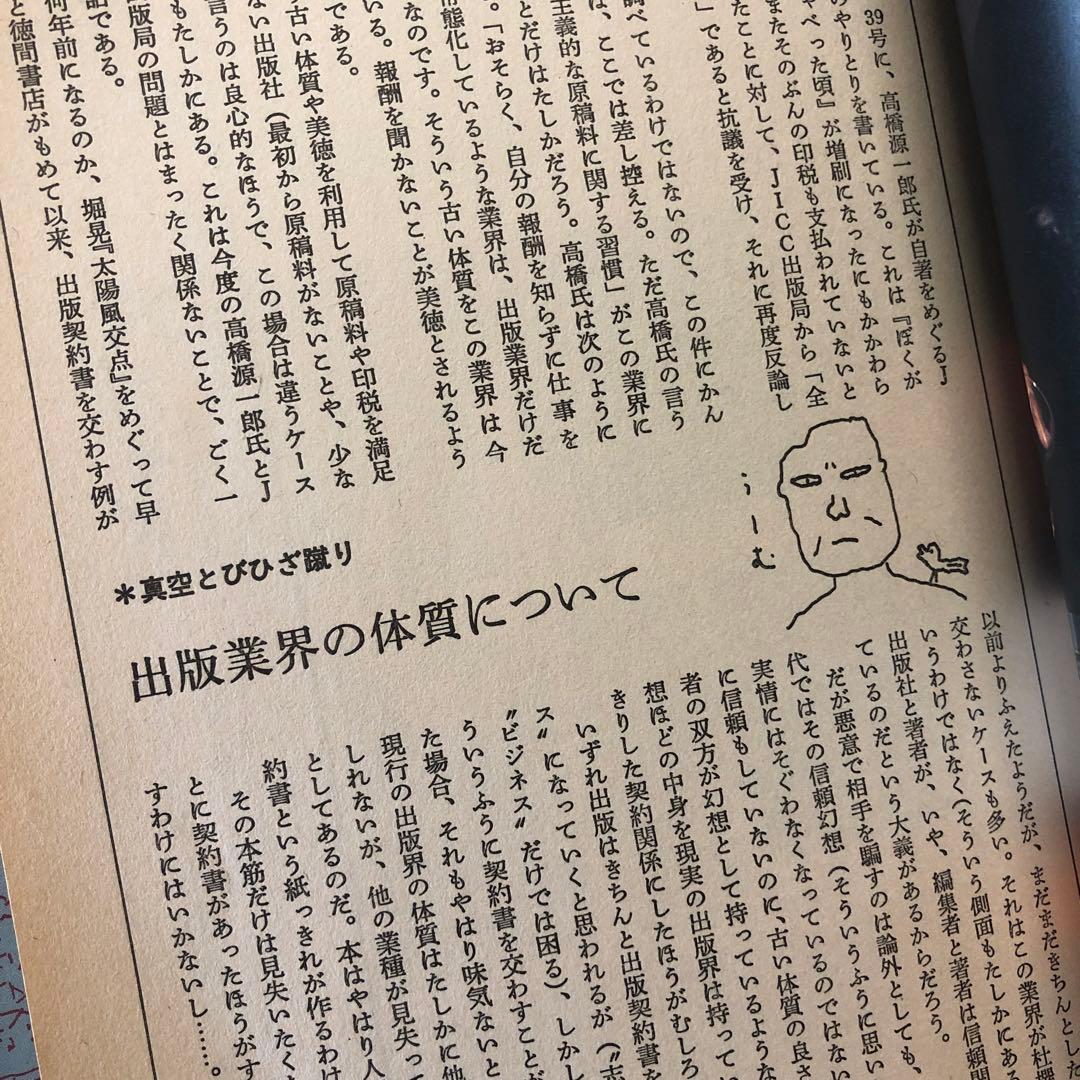 39号に、高橋源一郎氏が自著をめぐるJ
のやりとりを書いている。これは『ぼくが
ゃべった頃』が増刷になったにもかかわら
またそのぶんの印税も支払われていないと
たことに対して、JICC出版局から「全
」であると抗議を受け、それに再度反論し
調べているわけではないので、この件にかん
は、ここでは差し控える。ただ高橋氏の言う
主義的な原稿料に関する習慣」がこの業界に
とだけはたしかだろう。高橋氏は次のように
。「おそらく、自分の報酬を知らずに仕事を
常態化しているような業界は、出版業界だけだ
なのです。そういう古い体質をこの業界は今
いる。報酬を聞かないことが美徳とされるよう
である。
古い体質や美徳を利用して原稿料や印税を満足
ない出版社（最初から原稿料がないことや、少な
言うのは良心的なほうで、この場合は違うケース
もたしかにある。これは今度の高橋源一郎氏とJ
版局の問題とはまったく関係ないことで、ごく一
話である。
何年前になるのか、堀晃『太陽風交点』をめぐって早
と徳間書店がもめて以来、出版契約書を交わす例が
うーむ
＊真空とびひざ蹴り
出版業界の体質について
以前よりふえたようだが、まだまだきちんとした
交わさないケースも多い。それはこの業界が杜撰
いうわけではなく（そういう側面もたしかにある
出版社と著者が、いや、編集者と著者は信頼関
ているのだという大義があるからだろう。
だが悪意で相手を騙すのは論外としても、
代ではその信頼幻想（そういうふうに思い
実情にはそぐわなくなっているのではない
に信頼もしていないのに、古い体質の良さ
者の双方が幻想として持っているような
想ほどの中身を現実の出版界は持ってい
きりした契約関係にしたほうがむしろ
いずれ出版はきちんと出版契約書を
ス〟になっていくと思われるが（〝志
〝ビジネス〟だけでは困る）、しかし
ういうふうに契約書を交わすことが
た場合、それもやはり味気ないと
現行の出版界の体質はたしかに他
しれないが、他の業種が見失っ
としてあるのだ。本はやはり人
約書という紙っきれが作るわけ
その本筋だけは見失いたく
とに契約書があったほうがす
すわけにはいかないし……。